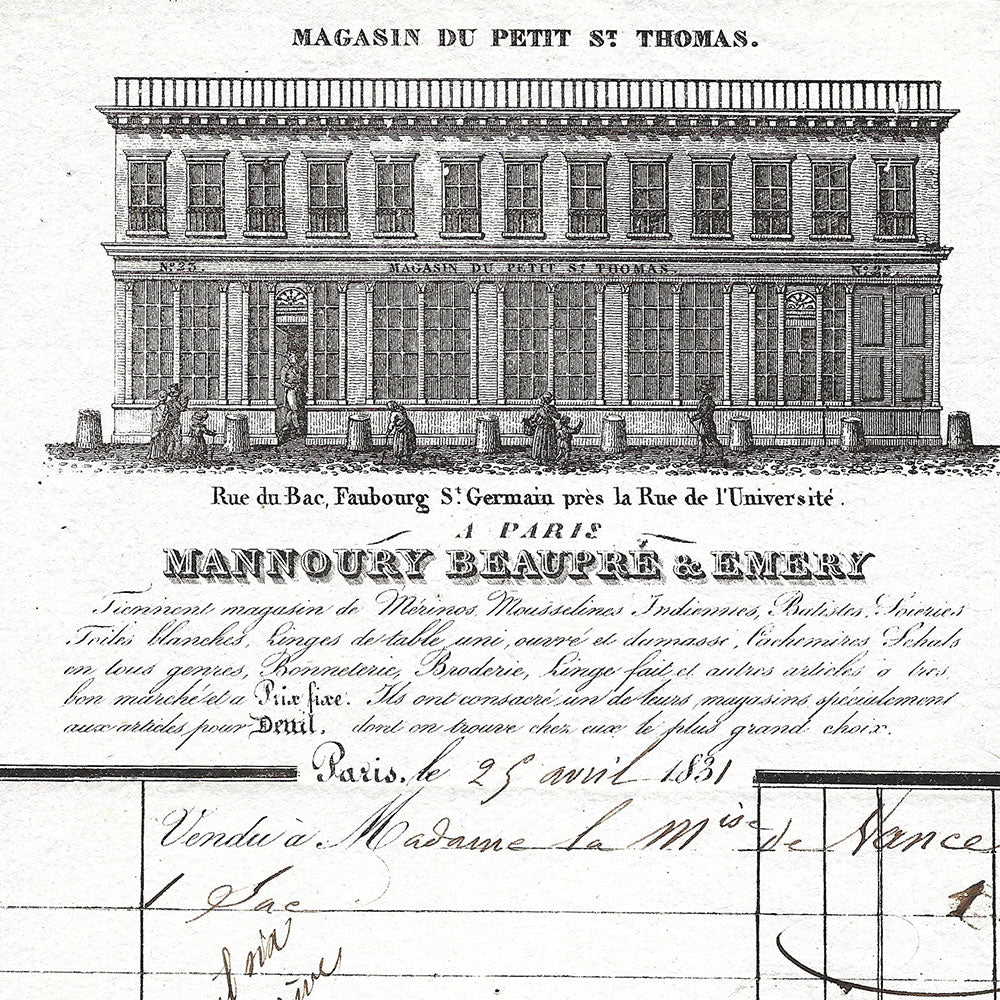 MAGASIN DU PETIT ST. THOMAS.
N° 23. MAGASIN DU PETIT ST. THOMAS. N° 23.
Rue du Bac, Faubourg St. Germain près la Rue de l'Université.
A PARIS
MANNOURY BEAUPRÉ & EMERY
Tiennent magasin de Mérinos, Mousselines Indiennes, Batistes, Soieries
Toiles blanches, Linges de table, uni, ouvré et damassé, Cachemires, Schals
en tous genres, Bonneterie, Broderie, Linge fait et autres articles à très
bon marché et à Prix fixe. Ils ont consacré un de leurs magasins spécialement
aux articles pour Deuil, dont on trouve chez eux le plus grand choix.
Paris, le 25 avril 1831
Vendu à Madame la Mise de Nance
1 Sac 1